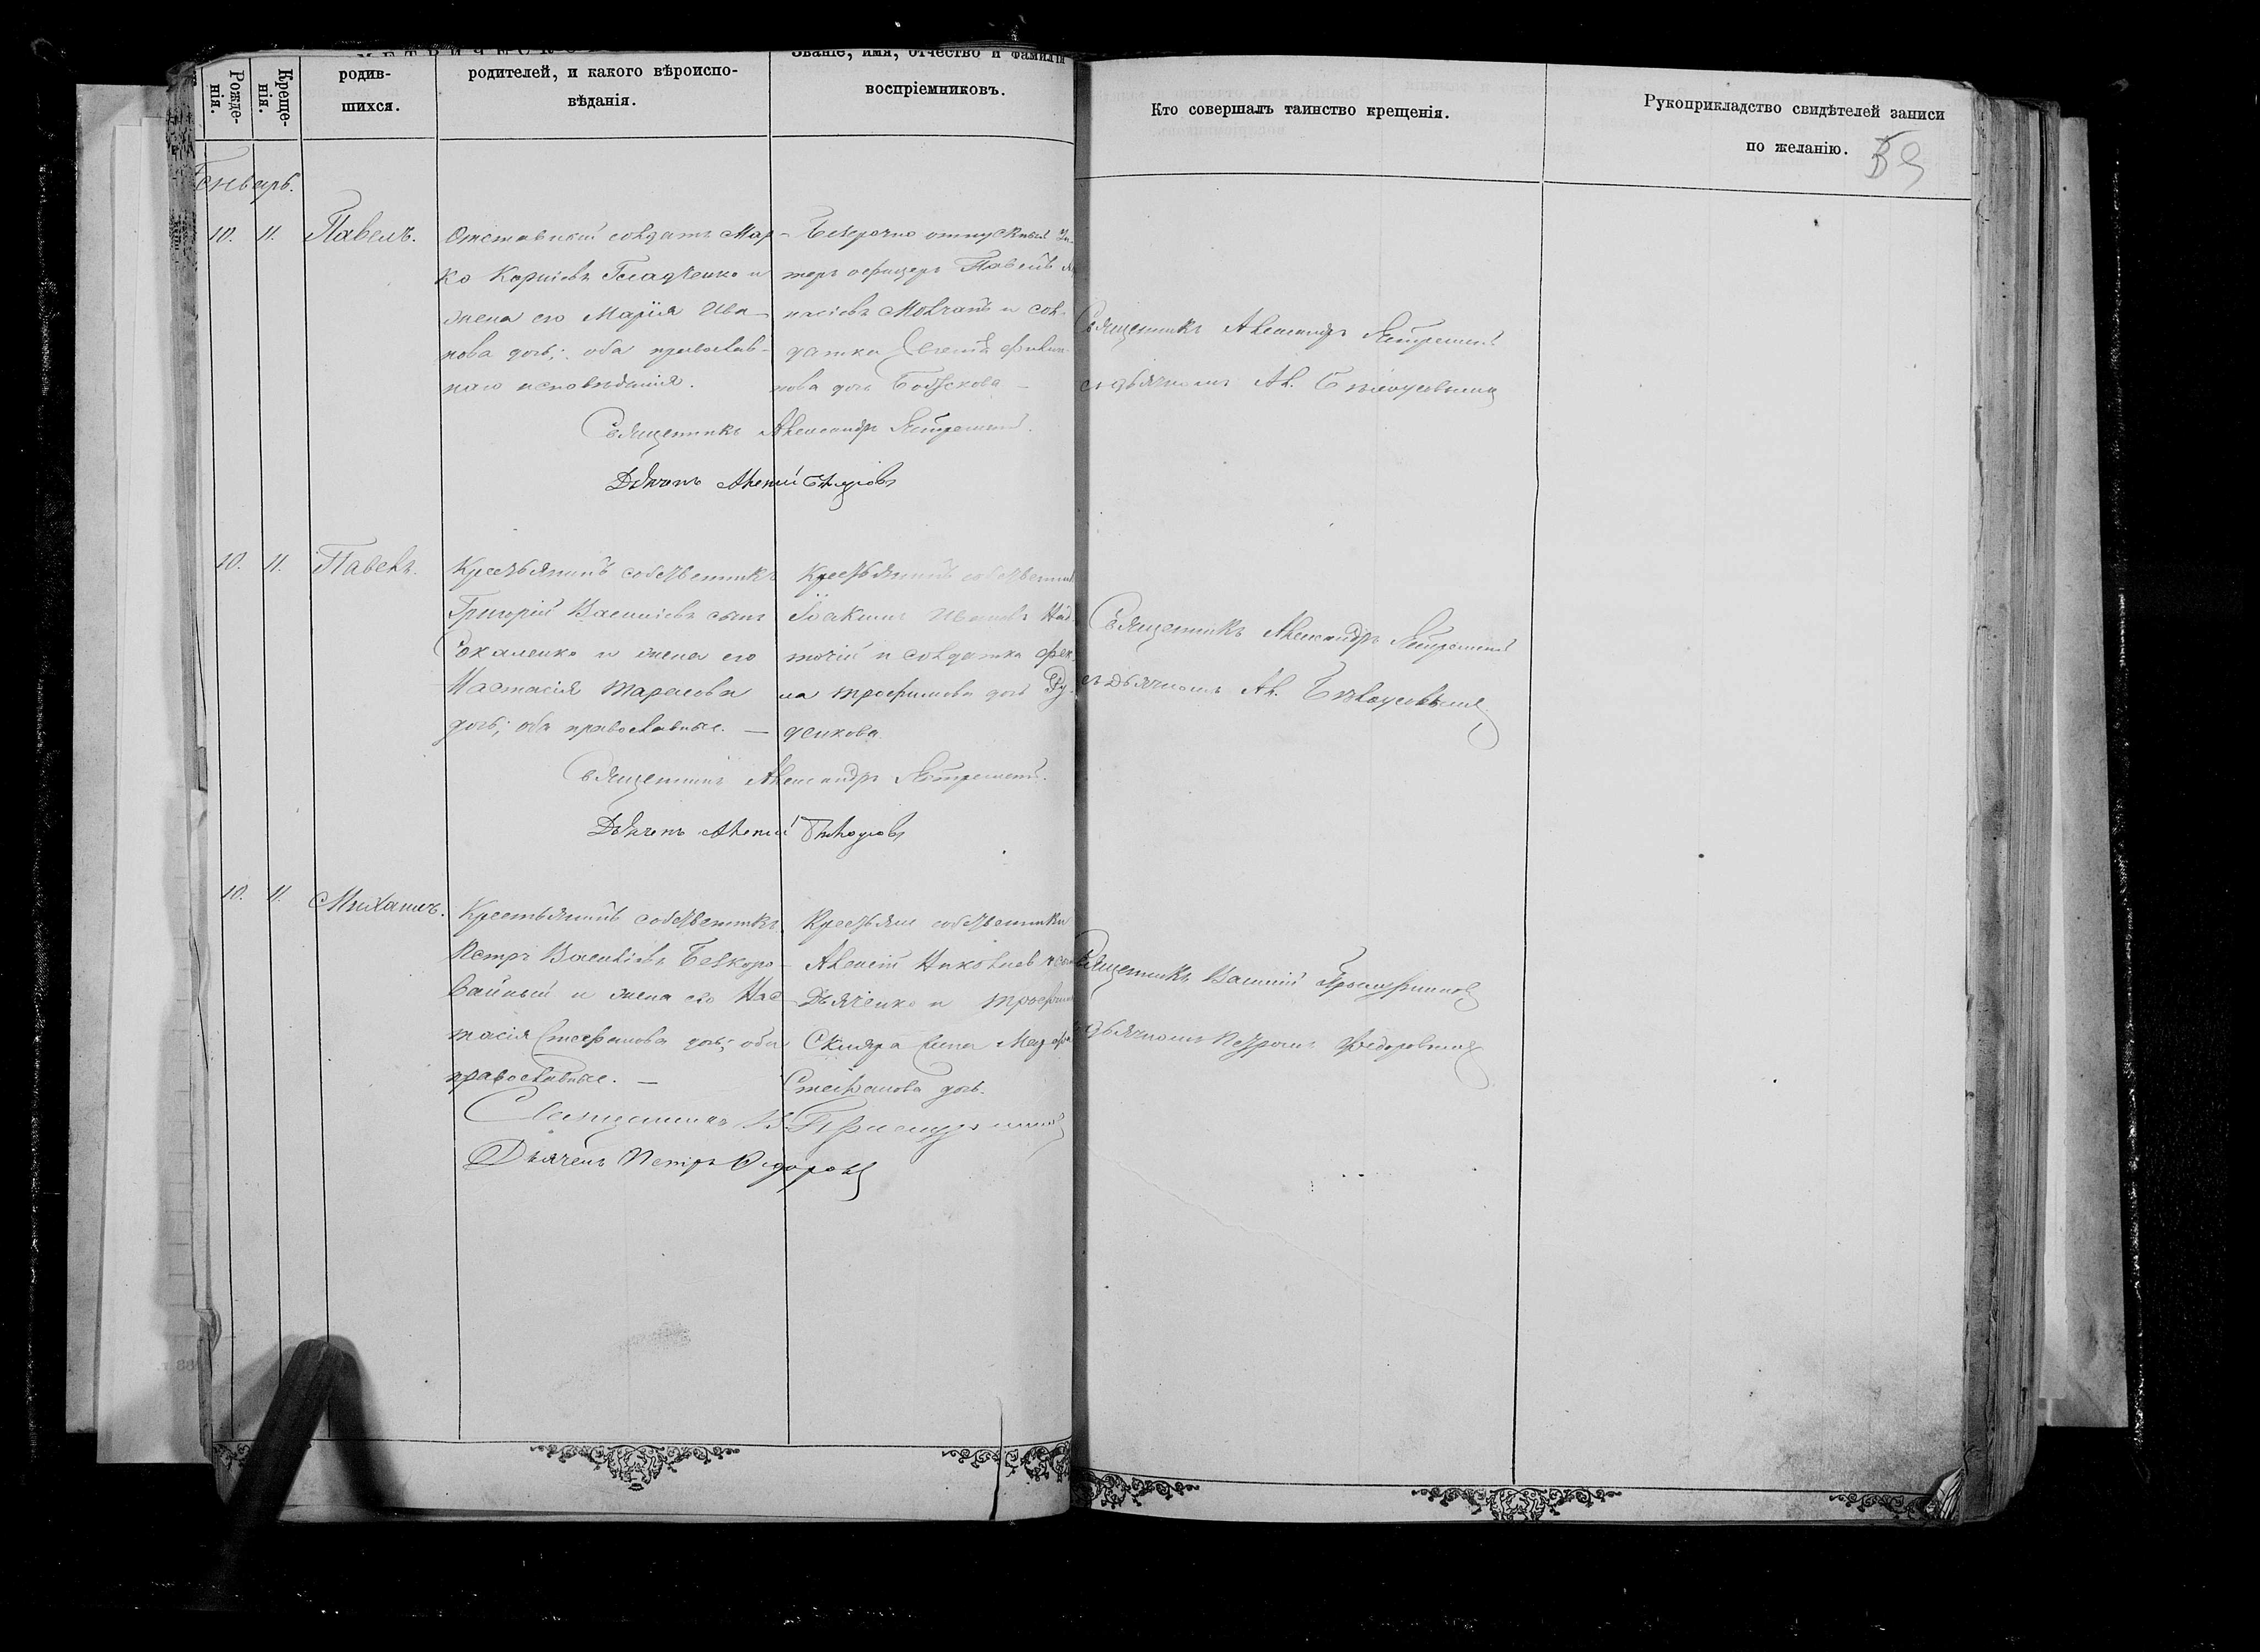 Рожде-
нія.
Креще-
нія.
родив-
шихся.
родителей, и какого вѣроиспо-
вѣданія.
Званіе, имя, отчество и фамилія
воспріемниковъ.
Кто совершалъ таинство крещенія.
Рукоприкладство свидѣтелей записи
по желанію.
Генварь.
10. 11. Павелъ.
Отставный солдатъ Мар-
ко Корніевъ Гладченко и
жена его Марія Ива-
нова дочь; оба православ-
наго исповѣданія.
Безсрочно отпускный Ун-
теръ офицеръ Павелъ
Молчанъ и сол-
датка
нова дочь
Священникъ Александръ
съ дьячкомъ Ал. Бѣлоусовымъ
Священникъ Александръ
Дьячекъ Алексій Бѣлоусовъ
10. 11. Павелъ.
Крестьянинъ собственникъ
Григорій Василіевъ сынъ
Сокаленко и жена его
Настасія Тарасова
дочь; оба православные. —
Крестьянинъ собственникъ
Іоакимъ Ивановъ Най-
точій и солдатка Фек-
ла Трофимова дочь Ру-
денкова
Священникъ Александръ
съ дьячкомъ Ал. Бѣлоусовымъ
Священникъ Александръ
Дьячекъ Алексій Бѣлоусовъ
10. 11. Михаилъ.
Крестьянинъ собственникъ
Петръ Василіевъ Безкоро-
вайный и жена его Нас-
тасія Стефанова дочь; оба
православные. —
Крестьяне собственники
Алексій Николаевъ
Дьяченко и Трофима
Скляра жена
Стефанова дочь.
Священникъ Василій
дьячкомъ Петромъ Федоровымъ
Священникъ В.
Дьячекъ Петръ Федоровъ